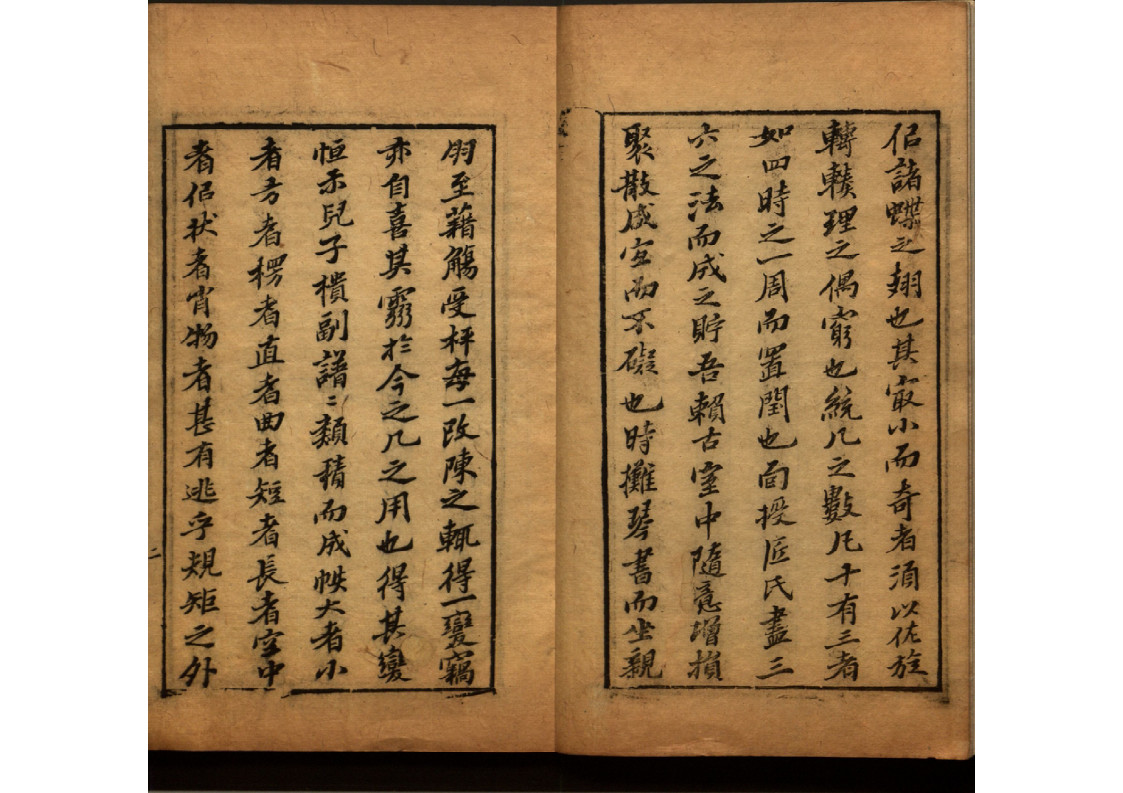 侣諸蝶之翅也其㝡小而奇者須以佐旋
轉贅理之偶窮也統几之數凡十有三者
如四時之一周而置閏也面授匠氏盡三
六之法而成之貯吾賴古室中隨意增損
聚散咸宜而不礙也時攤琴書而坐親
朋至藉觴受枰每一改陳之輒得一變竊
亦自喜其霛於今之几之用也得其變
恒示兒子樻副譜二類積而成帙大者小
者方者楞者直者曲者短者長者空中
者侣狀者肖物者甚有逃乎規矩之外
二